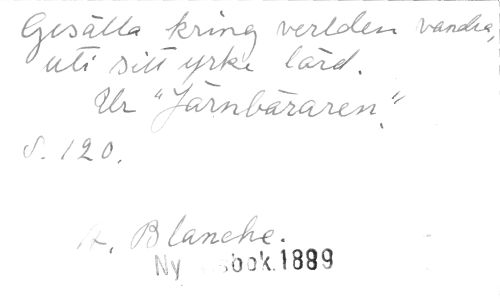 Gesälla kring verlden vandra,
uti sitt yrke lärd.
Ur "Järnbäraren."
S. 120.
A. Blanche.
Ny bok 1889